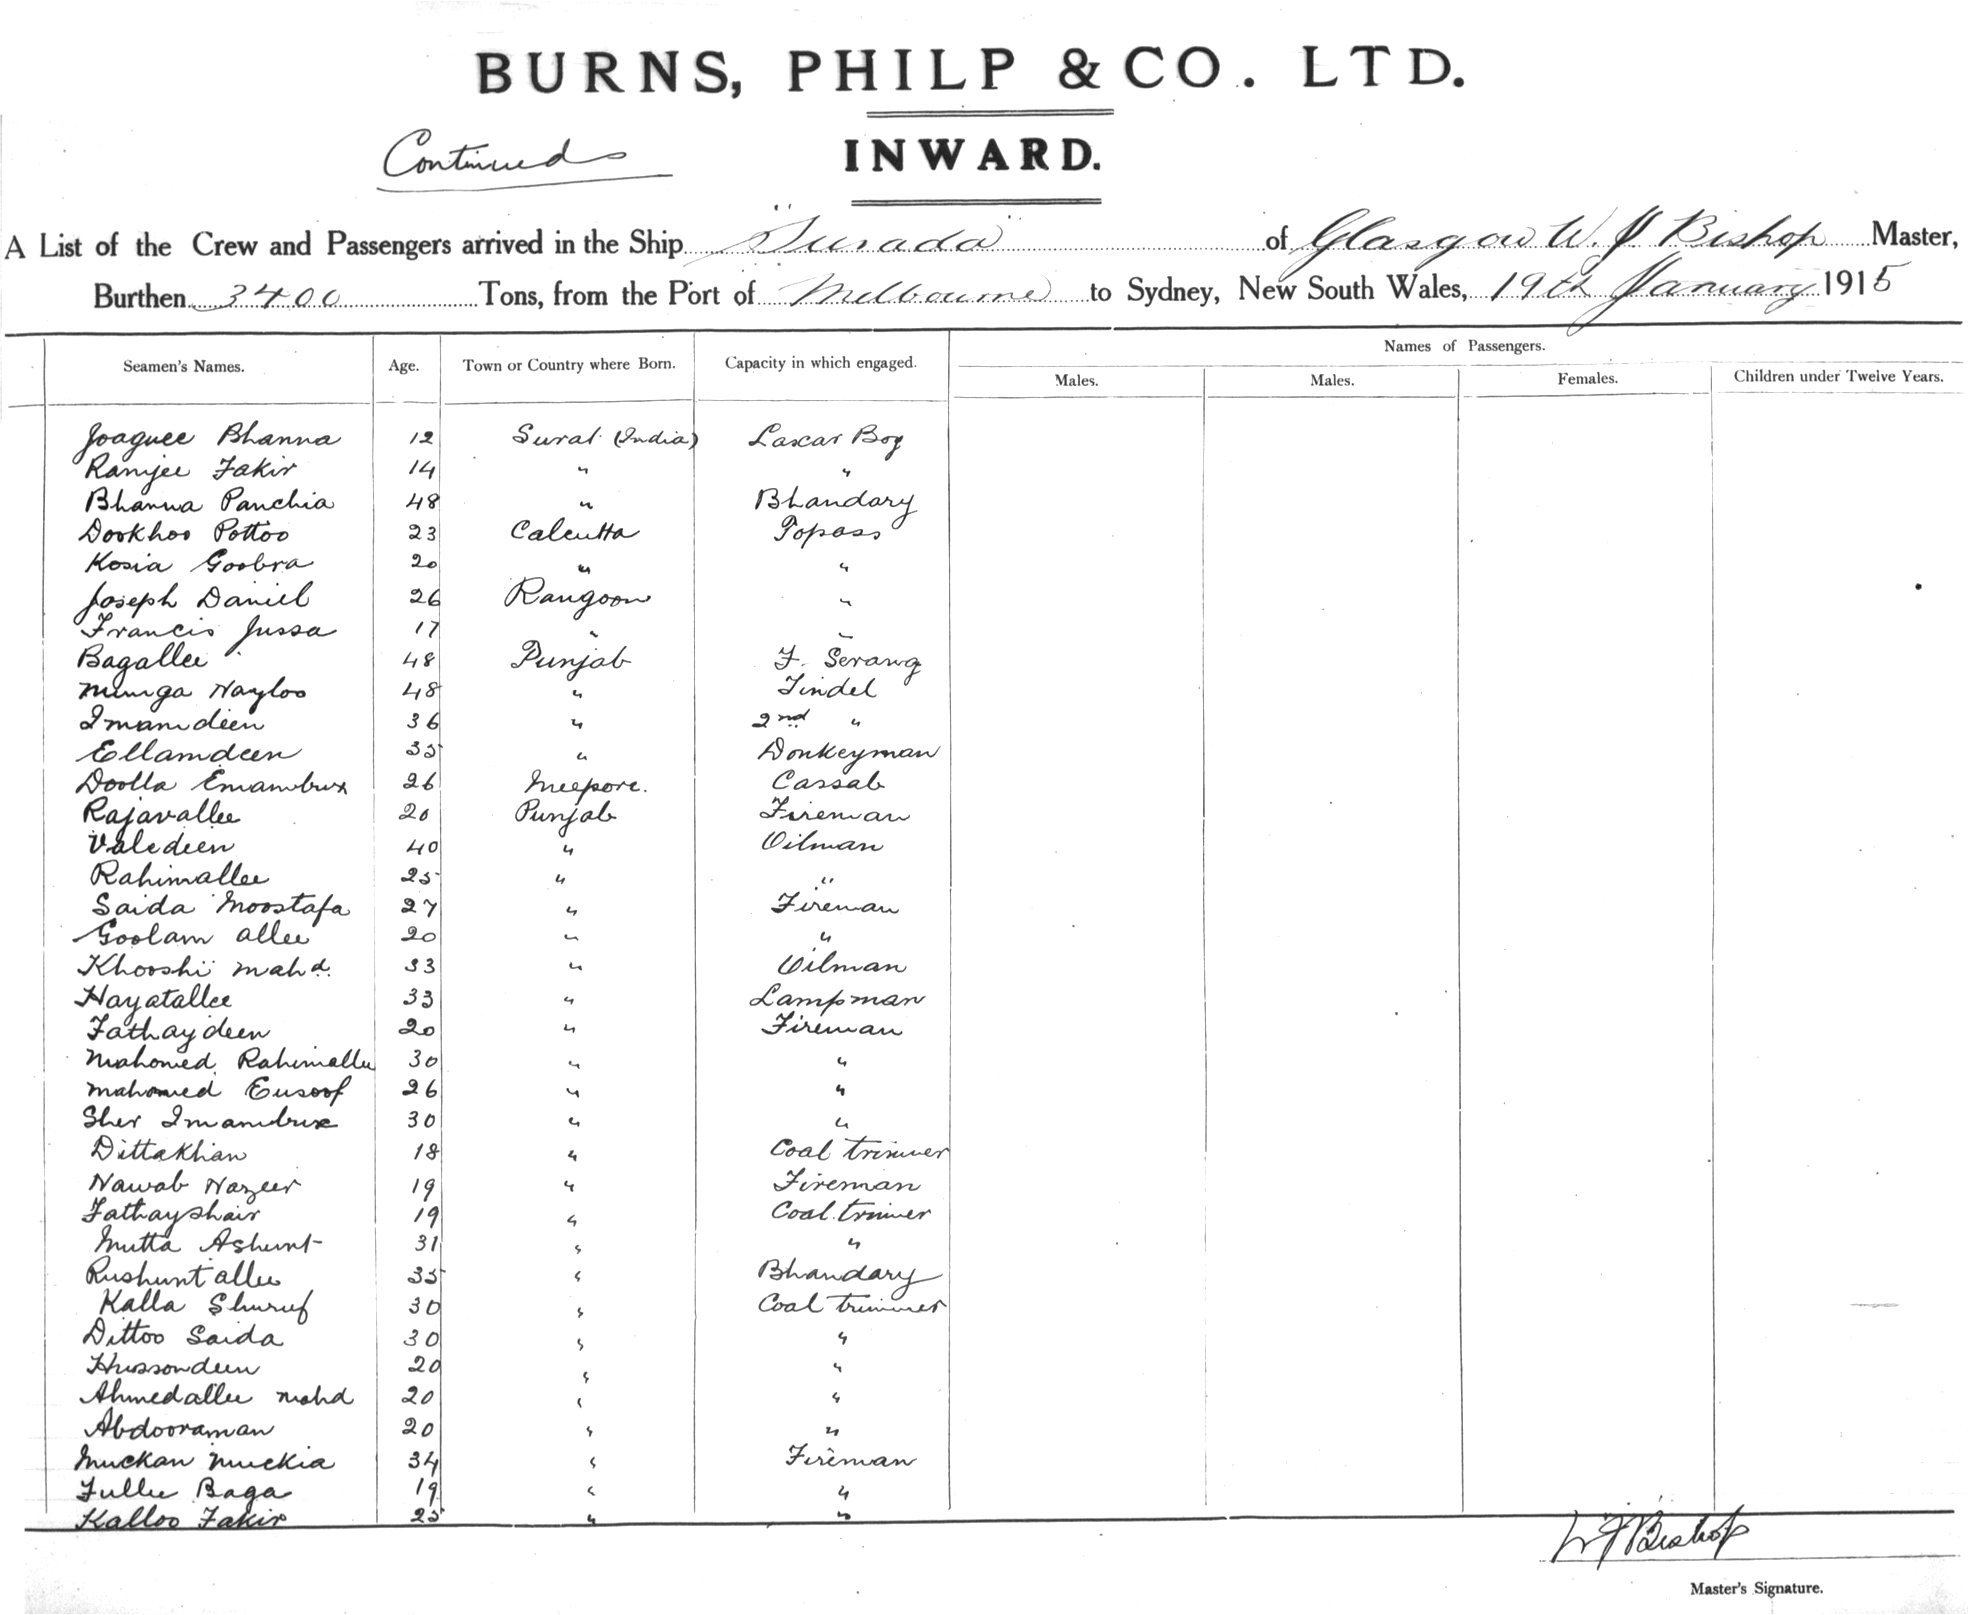 BURNS, PHILP & CO. LTD.
Continued
INWARD.
A List of the Crew and Passengers arrived in the Ship "Surada" of Glasgow W. J Bishop Master,
Burthen 3400 Tons, from the Port of Melbourne to Sydney, New South Wales, 19th January 1915
Names of Passengers.
Seamen's Names. Age. Town or Country where Born. Capacity in which engaged. Males. Males. Females. Children under Twelve Years.
Joaguee Bhanna 12 Surat (India) Lascar Boy
Ramjee Fakir 14 " "
Bhanna Panchia 48 " Bhandary
Dookhoo Pottoo 23 Calcutta Topass
Kosia Goobra 20 " "
Joseph Daniel 26 Rangoon "
Francis Jussa 17 " "
Bagallee 48 Punjab F. Serang
Munga Nayloo 48 " Tindel
Imamdeen 36 " 2nd "
Ellamdeen 35 " Donkeyman
Doolla Emambux 26 Meepore. Cassab
Rajavallee 20 Punjab Fireman
Valedeen 40 " Oilman
Rahimallee 25 " "
Saida Moostafa 27 " Fireman
Goolam allee 20 " "
Khooshi mahd. 33 " Oilman
Hayatallee 33 " Lampman
Fathaydeen 20 " Fireman
Mahomed Rahimallee 30 " "
mahomed Eusoof 26 " "
Sher Imambux 30 " "
Dittakhan 18 " Coal trimmer
Nawab Nazeer 19 " Fireman
Fathayshair 19 " Coal trimmer
Mutta Ashunt 31 " "
Rushuntallee 35 " Bhandary
Kalla Shuruf 30 " Coal trimmer
Dittoo Saida 30 " "
Hussondeen 20 " "
Ahmedallee mahd 20 " "
Abdooraman 20 " "
Muckan Muckia 34 " Fireman
Fullee Baga 19 " "
Kalloo Fakir 25 " "
W J Bishop
Master's Signature.